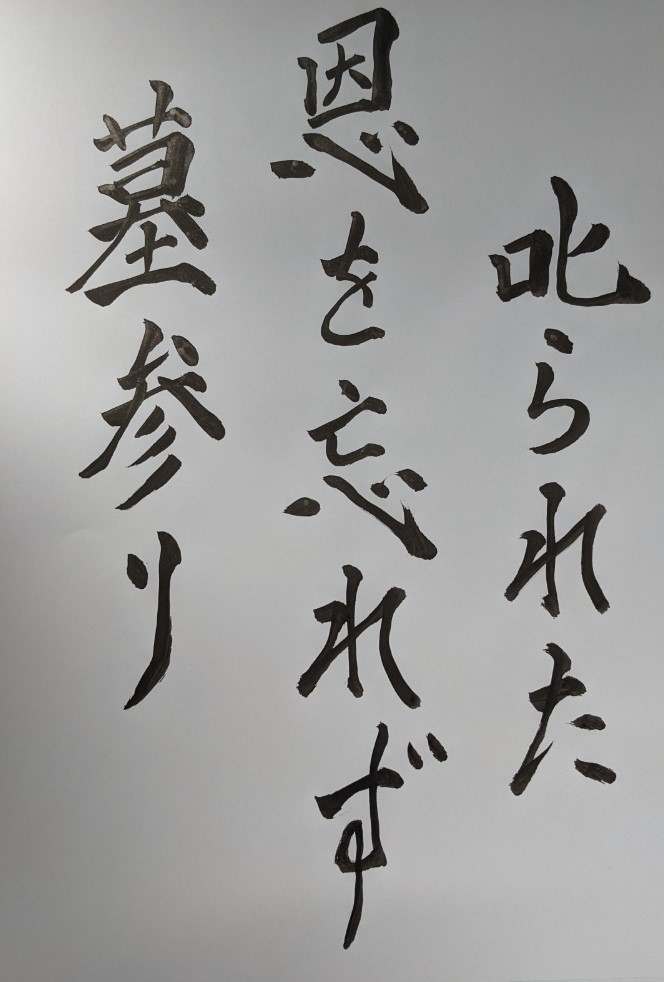 叱られた
恩を忘れず
墓参り